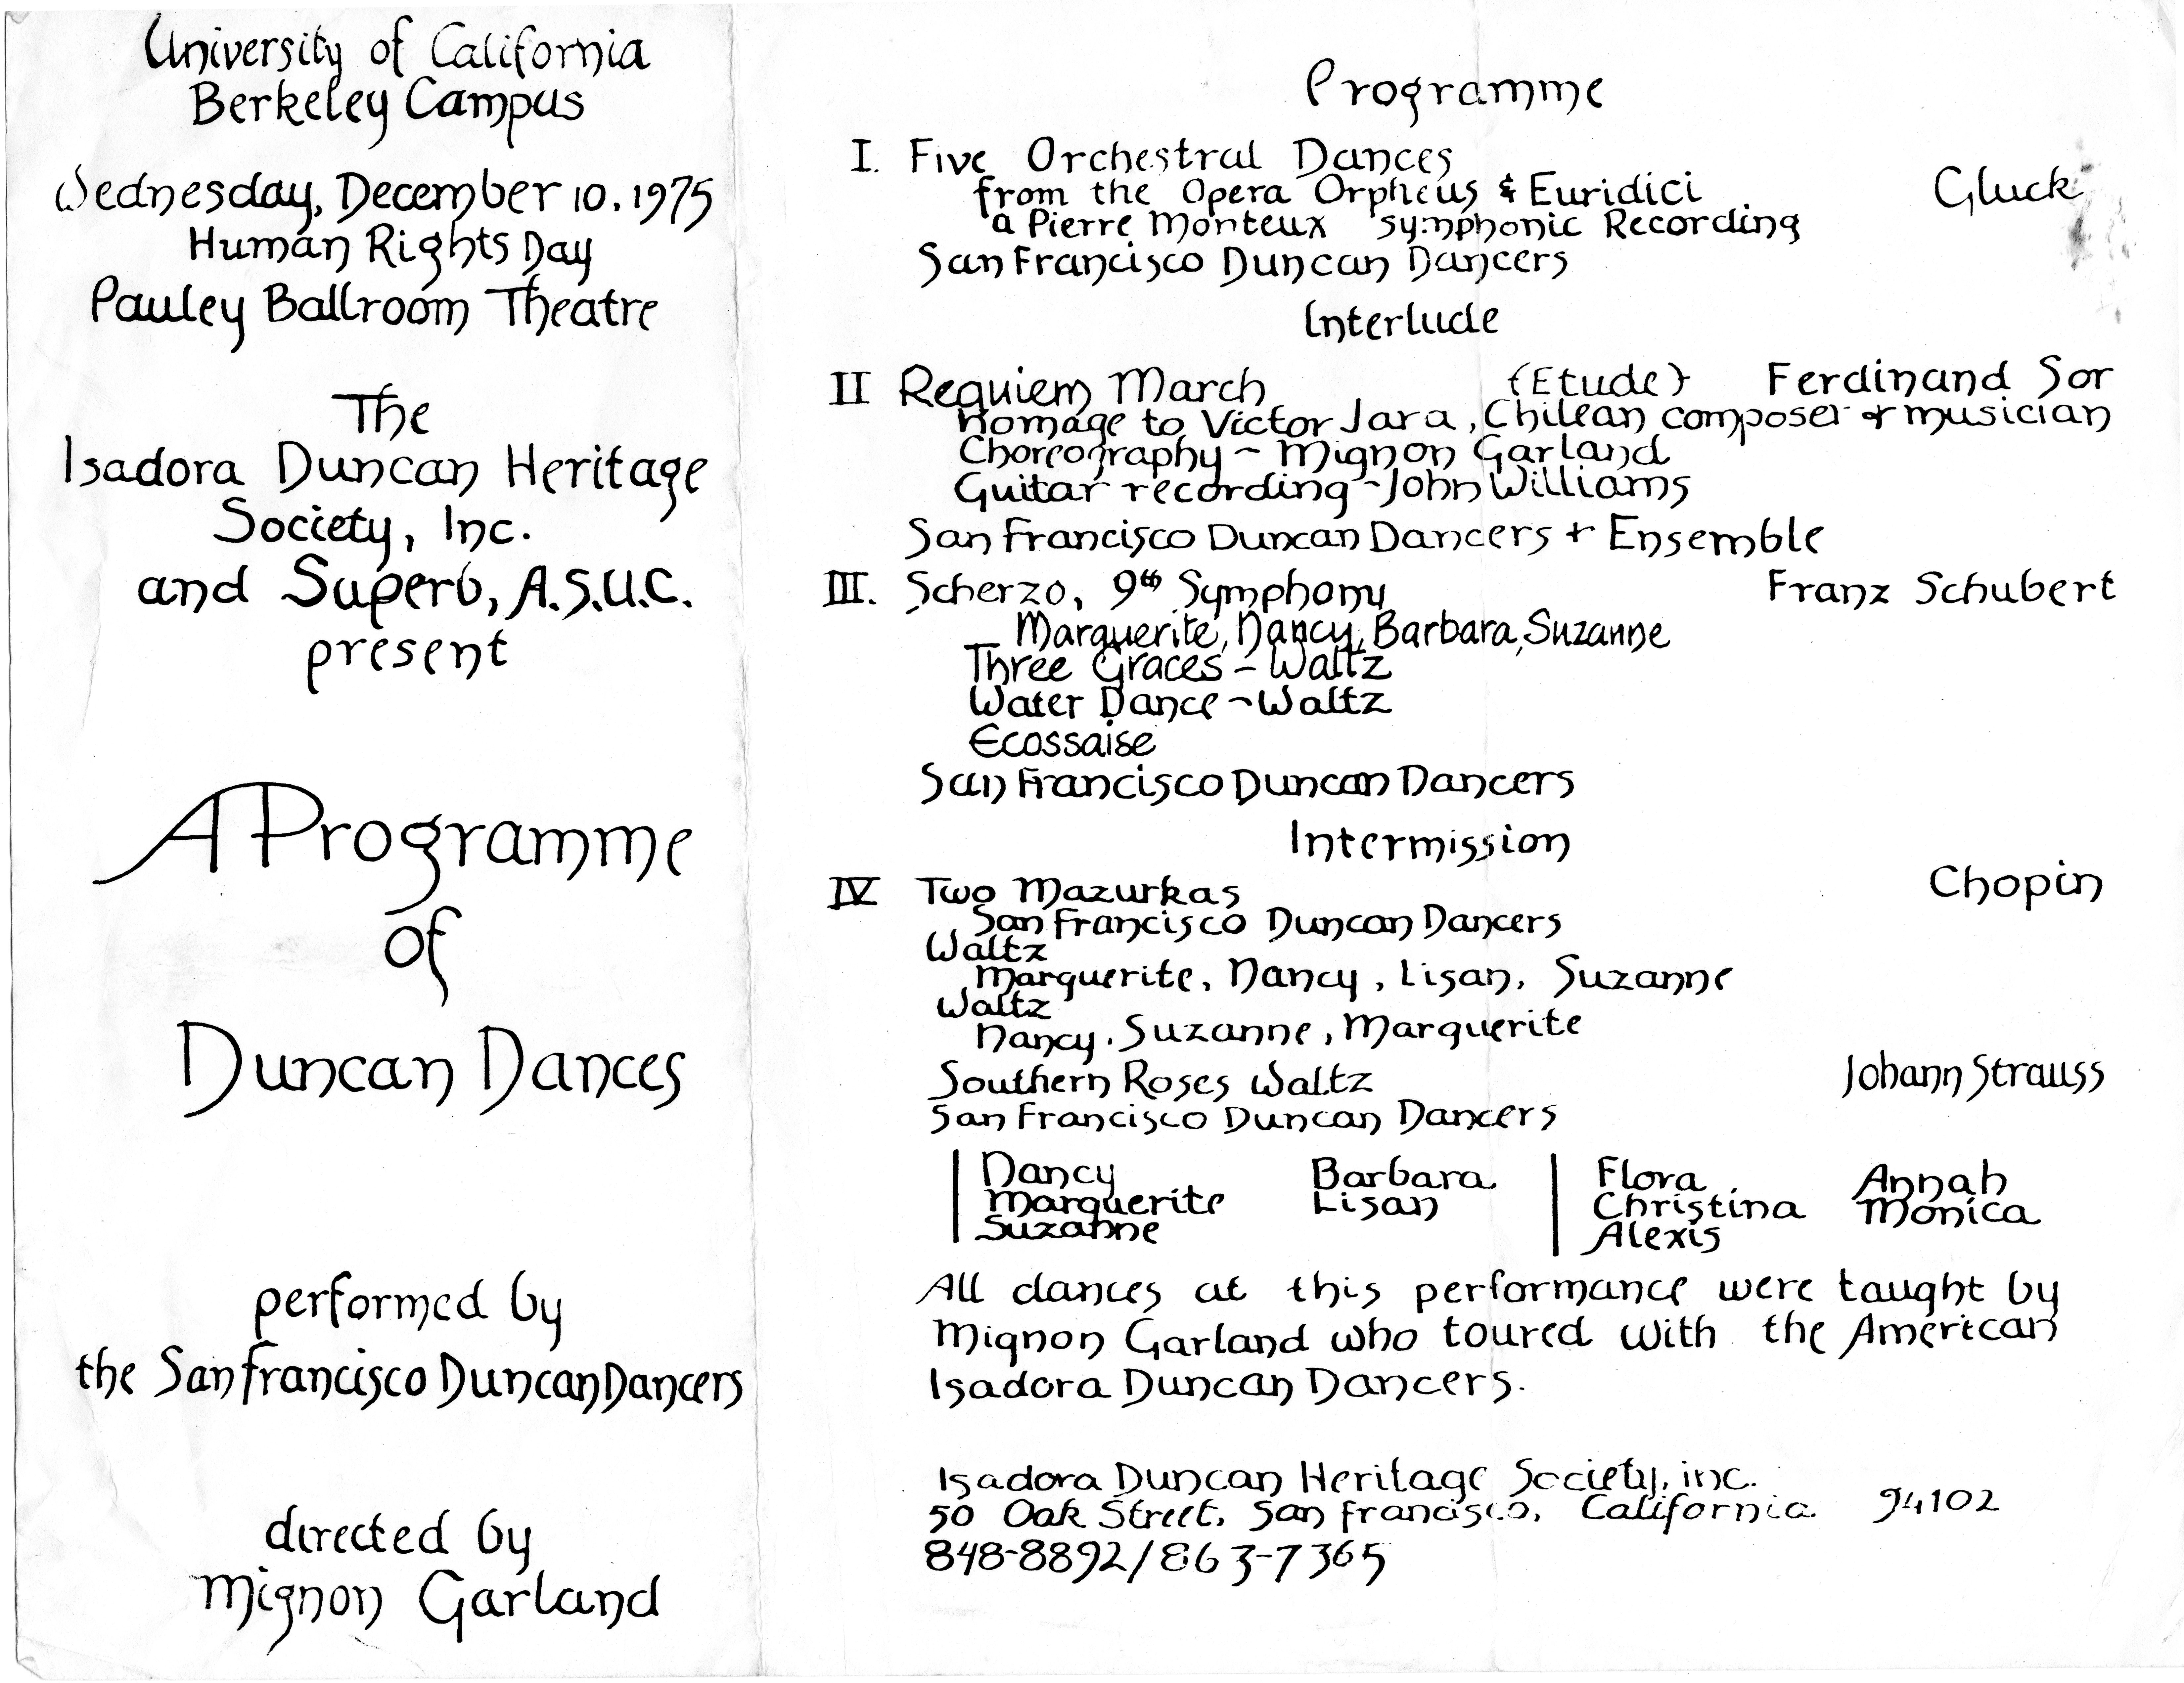 University of California
Berkeley Campus
Wednesday, December 10, 1975
Human Rights Day
Pauley Ballroom Theatre
The
Isadora Duncan Heritage
Society, Inc.
and Superb, A.S.U.C.
present
A Programme
of
Duncan Dances
performed by
the San Francisco Duncan Dancers
directed by
Mignon Garland
Programme
I. Five Orchestral Dances
from the Opera Orpheus & Euridici Gluck
a Pierre Monteux Symphonic Recording
San Francisco Duncan Dancers
Interlude
II Requiem March {Etude} Ferdinand Sor
homage to Victor Jara, Chilean composer & musician
Choreography - Mignon Garland
Guitar recording - John Williams
San Francisco Duncan Dancers + Ensemble
III. Scherzo, 9th Symphony Franz Schubert
Marguerite, Nancy, Barbara, Suzanne
Three Graces - Waltz
Water Dance - Waltz
Ecossaise
San Francisco Duncan Dancers
Intermission
IV Two Mazurkas Chopin
San Francisco Duncan Dancers
Waltz
Marguerite, Nancy, Lisan, Suzanne
Waltz
Nancy, Suzanne, Marguerite
Southern Roses Waltz Johann Strauss
San Francisco Duncan Dancers
Nancy Barbara Flora Annah
Marguerite Lisan Christina Monica
Suzanne Alexis
All dances at this performance were taught by
Mignon Garland who toured with the American
Isadora Duncan Dancers.
Isadora Duncan Heritage Society, inc.
50 Oak Street, San Francisco, California 94102
848-8892/863-7365